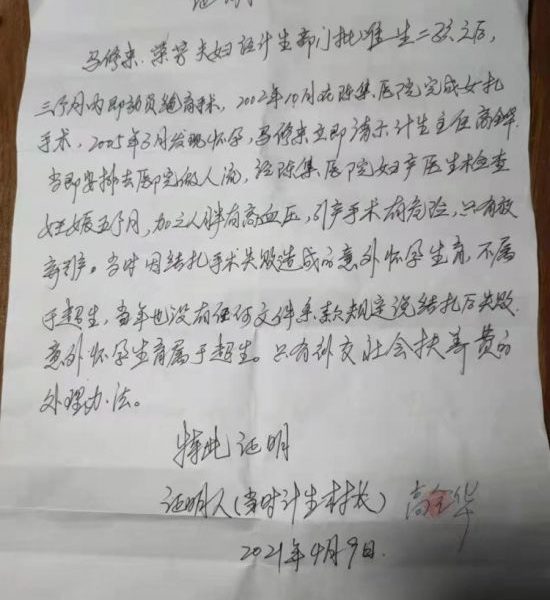 证明
马修东、荣芳夫妇经计生部门批准生二孩之后,
三个月内即动员绝育术,2002年10月在陈集医院完成女扎
手术,2005年3月发现怀孕,马修东立即请示计生主任高全华
当即安排去医院做人流,经陈集医院妇产医生检查
妊娠五个月,加之人胖有高血压,引产手术有危险,只有放
弃引产。当时因结扎手术失败造成的意外怀孕生育,不属
于超生,当年也没有任何文件条款规定说结扎后失败
意外怀孕生育属于超生。只有补交社会扶养费的
处理办法。
特此证明
证明人(当时计生村长) 高全华
2021年4月9日.